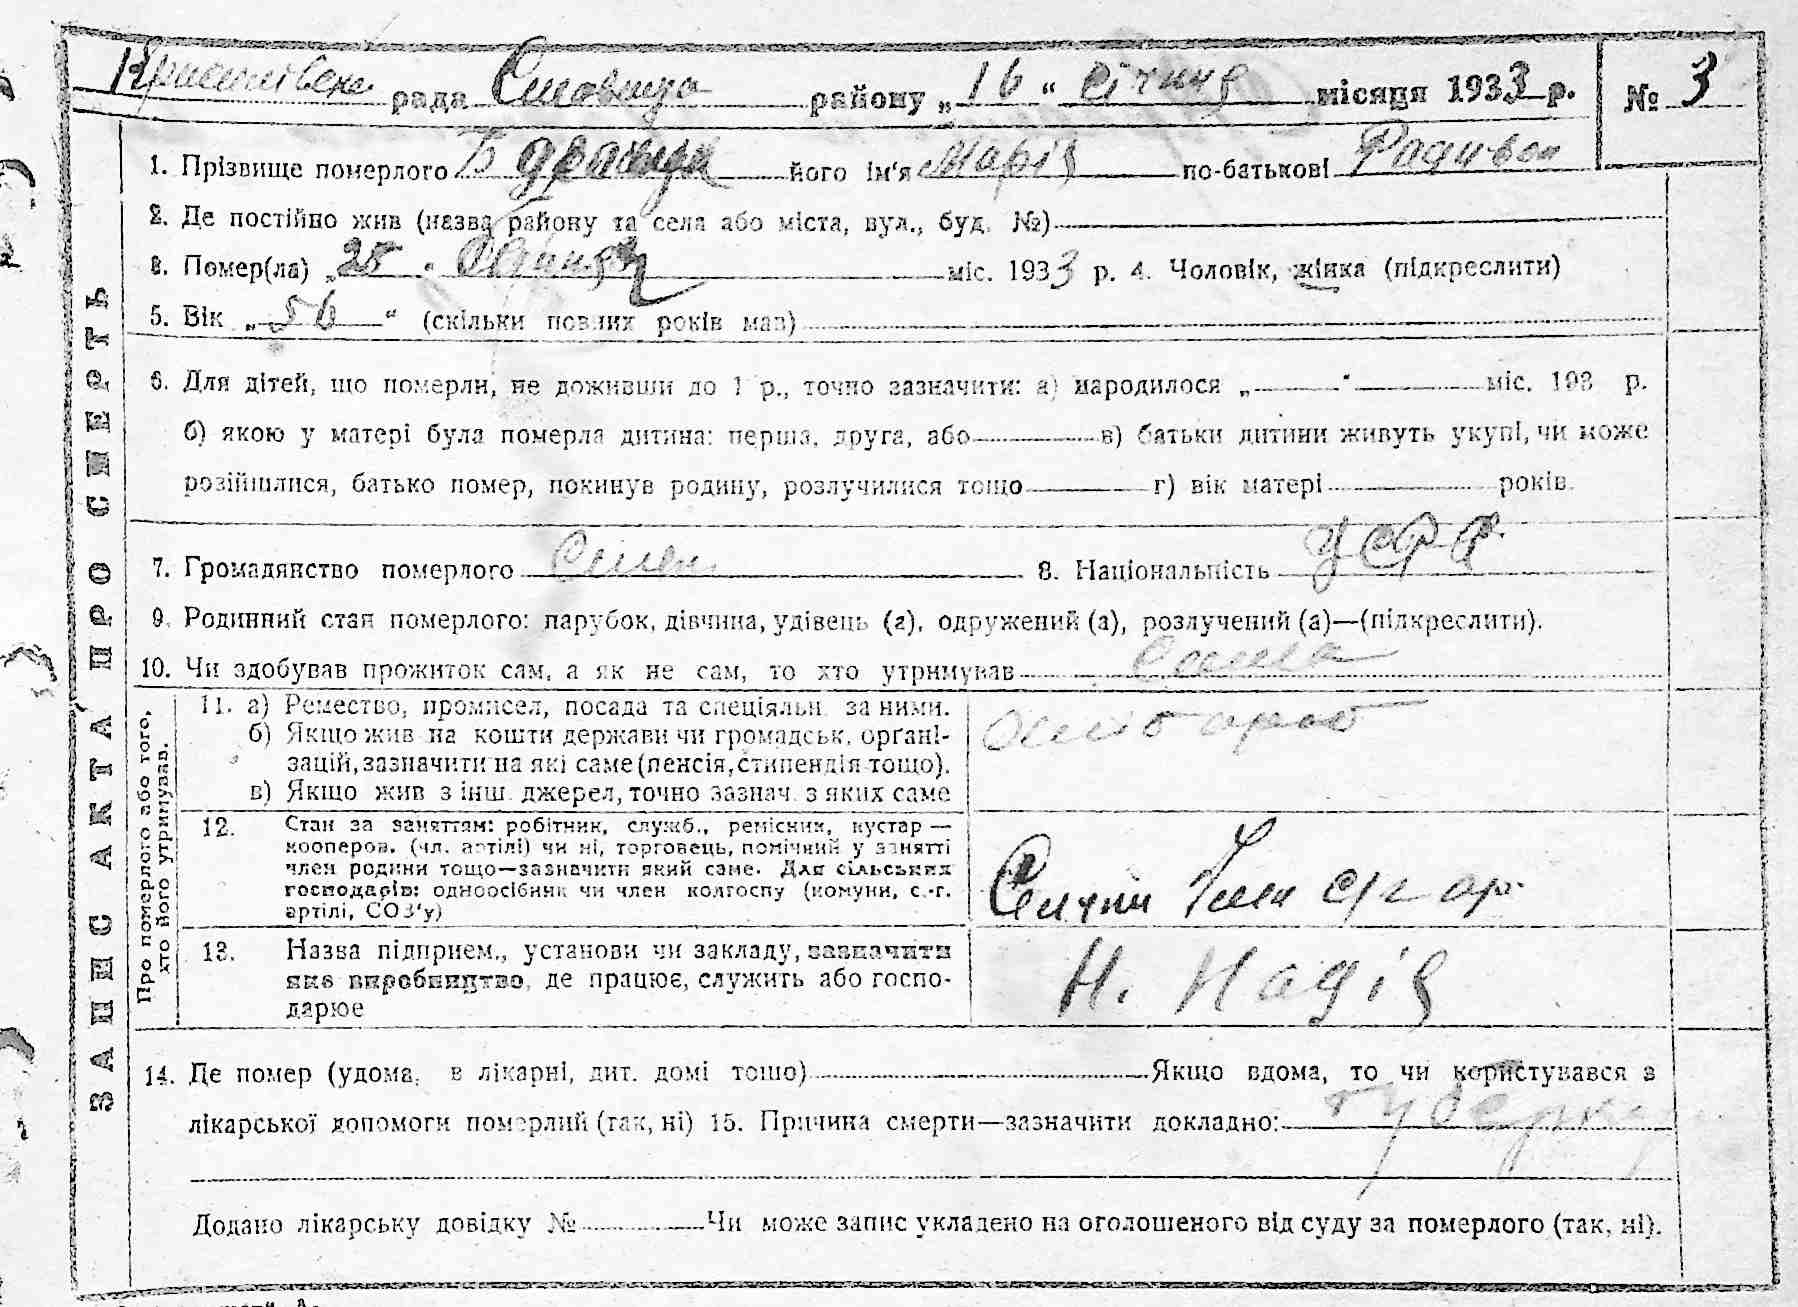 рада районум „16“ січня місяця 1933 р. № 3
1. Прізвище померлого його ім'я Марія по-батькові Радивон
2. Де постійно жив (назва району та села або міста, вул., буд. №)
3. Помер(ла) „28 міс. 1933 р. 4. Чоловік, жінка (підкреслити)
5. Вік „56“ (скільки повних років мав)
6. Для дітей, що померли, не доживши до 1 р., точно зазначити: а) народилося „ “ міс. 193 р.
б) якою у матері була померла дитина: перша, друга, або в) батьки дитини живуть укупі, чи може
розійшлися, батько помер, покинув родину, розлучилися тощо г) вік матері років.
7. Громадянство померлого 8. Національність УСРР
9. Родинний стан померлого: парубок, дівчина, удівець (а), одружений (а), розлучений (а)—(підкреслити).
10. Чи здобував прожиток сам, а як не сам, то хто утримував Сама
ЗАПИС АКТА ПРО СМЕРТЬ
Про померлого або того,
хто його утримував.
11. а) Ремество, промисел, посада та спеціяльн. за ними.
б) Якщо жив на кошти держави чи громадськ. органі-
зацій, зазначити на які саме (пенсія, стипендія тощо).
в) Якщо жив з інш. джерел, точно зазнач. з яких саме
12. Стан за заняттям: робітник, служб., ремісник, кустар —
кооперов. (чл. артілі) чи ні, торговець, помічний у занятті
член родини тощо—зазначити який саме. Для сільських
господарів: одноосібник чи член колгоспу (комуни, с.-г.
артілі, СОЗ'у)
13. Назва підприєм., установи чи закладу, зазначити
яке виробництво, де працює, служить або госпо-
дарює
Н. Надія
14. Де помер (удома, в лікарні, дит. домі тощо) Якщо вдома, то чи користувався з
лікарської допомоги померлий (так, ні) 15. Причина смерти—зазначити докладно: туберк
Додано лікарську довідку № Чи може запис укладено на оголошеного від суду за померлого (так, ні).